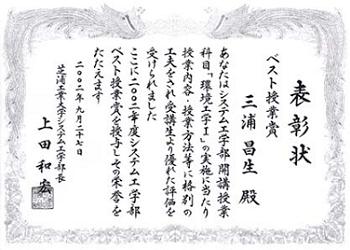 表彰状
ベスト授業賞
三浦昌生 殿
あなたはシステム工学部開講授業
科目「環境工学Ⅰ」の実施に当たり
授業内容・授業方法等に格別の
工夫をされ受講生より優れた評価を
受けられました
ここに二〇〇二年度システム工学部
ベスト授業賞を授与しその栄誉を
たたえます
二〇〇二年九月二十七日
芝浦工業大学システム工学部長
上田和宏